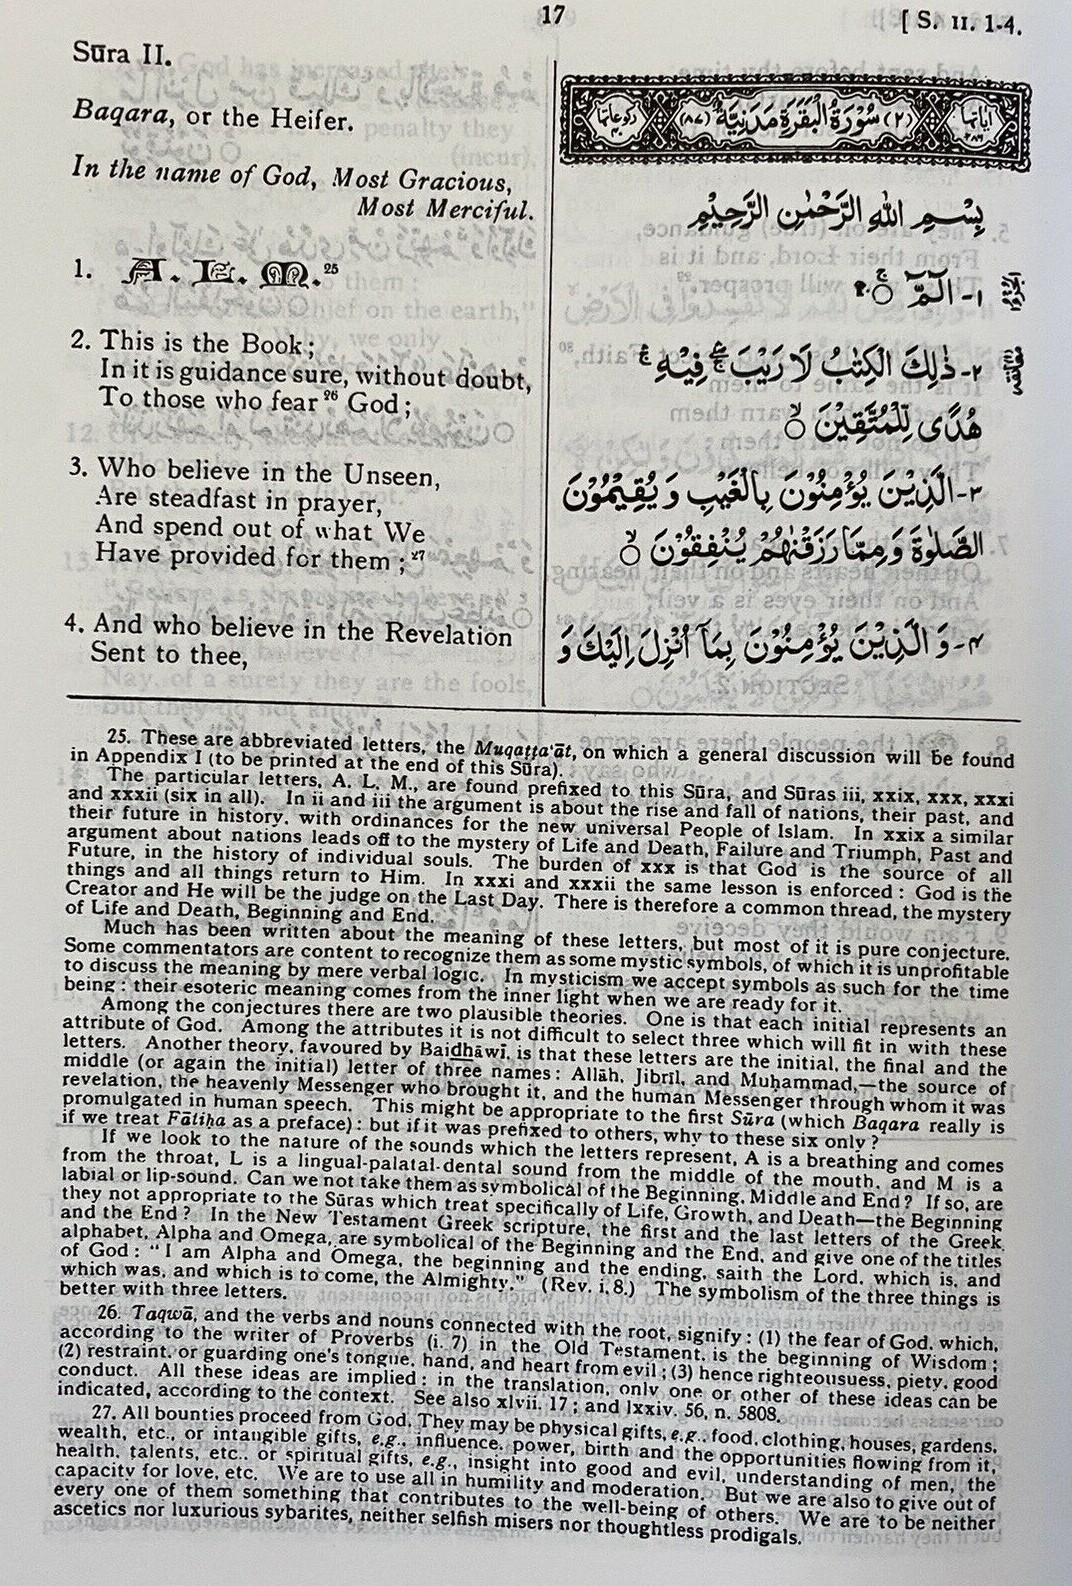 17
[ S. II. 1-4.
Sūra II.
Baqara, or the Heifer.
In the name of God, Most Gracious,
Most Merciful.
1. A. L. M.25
2. This is the Book;
In it is guidance sure, without doubt,
To those who fear26 God;
3. Who believe in the Unseen,
Are steadfast in prayer,
And spend out of what We
Have provided for them;27
4. And who believe in the Revelation
Sent to thee,
اٰیاتہا ٢٨٦ (٢) سُوْرَةُ الْبَقَرَةِ مَدَنِيَّةٌ (٨٧) رکوعاتہا ٤٠
بِسْمِ اللهِ الرَّحْمٰنِ الرَّحِيْمِ
١- الٓمّٓ ۚ○
٢- ذٰلِكَ الْكِتٰبُ لَا رَيْبَ ۛ فِيْهِ ۛ
هُدًى لِّلْمُتَّقِيْنَ ۙ○
٣- الَّذِيْنَ يُؤْمِنُوْنَ بِالْغَيْبِ وَ يُقِيْمُوْنَ
الصَّلٰوةَ وَمِمَّا رَزَقْنٰهُمْ يُنْفِقُوْنَ ۙ○
٤- وَ الَّذِيْنَ يُؤْمِنُوْنَ بِمَآ اُنْزِلَ اِلَيْكَ وَ
25. These are abbreviated letters, the Muqaṭṭa'āt, on which a general discussion will be found
in Appendix I (to be printed at the end of this Sūra).
The particular letters, A. L. M., are found prefixed to this Sūra, and Sūras iii, xxix, xxx, xxxi
and xxxii (six in all). In ii and iii the argument is about the rise and fall of nations, their past, and
their future in history, with ordinances for the new universal People of Islam. In xxix a similar
argument about nations leads off to the mystery of Life and Death, Failure and Triumph, Past and
Future, in the history of individual souls. The burden of xxx is that God is the source of all
things and all things return to Him. In xxxi and xxxii the same lesson is enforced: God is the
Creator and He will be the judge on the Last Day. There is therefore a common thread, the mystery
of Life and Death, Beginning and End.
Much has been written about the meaning of these letters, but most of it is pure conjecture.
Some commentators are content to recognize them as some mystic symbols, of which it is unprofitable
to discuss the meaning by mere verbal logic. In mysticism we accept symbols as such for the time
being: their esoteric meaning comes from the inner light when we are ready for it.
Among the conjectures there are two plausible theories. One is that each initial represents an
attribute of God. Among the attributes it is not difficult to select three which will fit in with these
letters. Another theory, favoured by Baidhāwī, is that these letters are the initial, the final and the
middle (or again the initial) letter of three names: Allāh, Jibrīl, and Muḥammad,—the source of
revelation, the heavenly Messenger who brought it, and the human Messenger through whom it was
promulgated in human speech. This might be appropriate to the first Sūra (which Baqara really is
if we treat Fātiḥa as a preface): but if it was prefixed to others, why to these six only?
If we look to the nature of the sounds which the letters represent, A is a breathing and comes
from the throat, L is a lingual-palatal-dental sound from the middle of the mouth, and M is a
labial or lip-sound. Can we not take them as symbolical of the Beginning, Middle and End? If so, are
they not appropriate to the Sūras which treat specifically of Life, Growth, and Death—the Beginning
and the End? In the New Testament Greek scripture, the first and the last letters of the Greek
alphabet, Alpha and Omega, are symbolical of the Beginning and the End, and give one of the titles
of God: "I am Alpha and Omega, the beginning and the ending, saith the Lord, which is, and
which was, and which is to come, the Almighty." (Rev. i. 8.) The symbolism of the three things is
better with three letters.
26. Taqwā, and the verbs and nouns connected with the root, signify: (1) the fear of God, which,
according to the writer of Proverbs (i. 7) in the Old Testament, is the beginning of Wisdom;
(2) restraint, or guarding one's tongue, hand, and heart from evil; (3) hence righteousuess, piety, good
conduct. All these ideas are implied: in the translation, only one or other of these ideas can be
indicated, according to the context. See also xlvii. 17; and lxxiv. 56, n. 5808.
27. All bounties proceed from God. They may be physical gifts, e.g., food, clothing, houses, gardens,
wealth, etc., or intangible gifts, e.g., influence, power, birth and the opportunities flowing from it,
health, talents, etc., or spiritual gifts, e.g., insight into good and evil, understanding of men, the
capacity for love, etc. We are to use all in humility and moderation. But we are also to give out of
every one of them something that contributes to the well-being of others. We are to be neither
ascetics nor luxurious sybarites, neither selfish misers nor thoughtless prodigals.